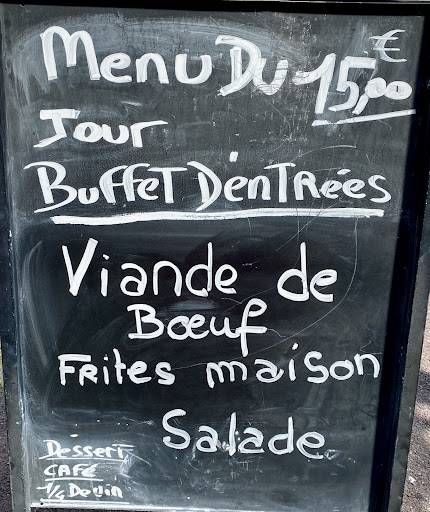 Menu Du 15,00 €
Jour
Buffet D'entrées
Viande de
Bœuf
Frites maison
Salade
Dessert
CAFé
1/4 De vin